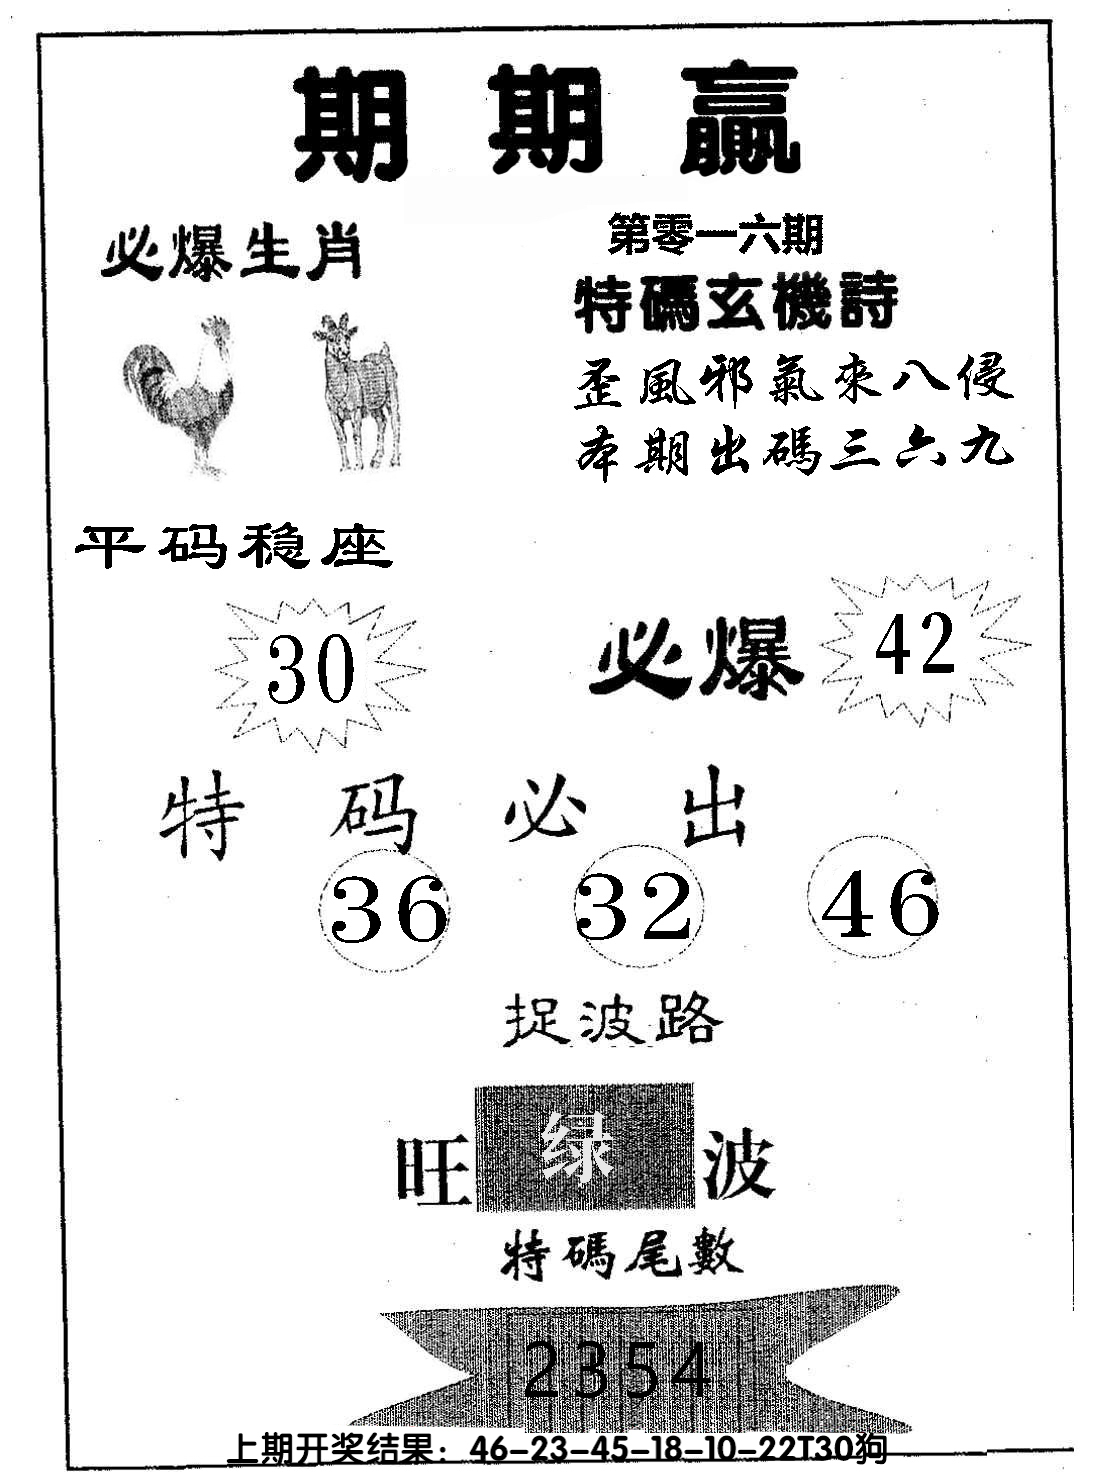 期期赢
必爆生肖
第零一六期
特碼玄機詩
歪風邪氣來八侵
本期出碼三六九
平码稳座
30
必爆 42
特码必出
36 32 46
捉波路
旺 绿 波
特碼尾數
2354
上期开奖结果：46-23-45-18-10-22T30狗